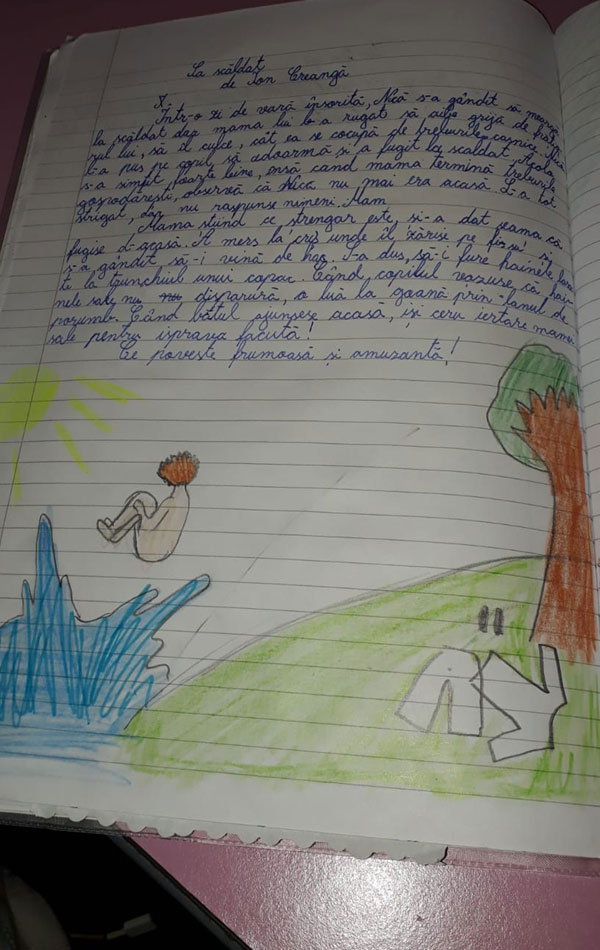 La scăldat
de Ion Creangă
I.
Într-o zi de vară însorită, Nică s-a gândit să meargă
la scăldat dar mama lui l-a rugat să aibe grijă de
lui, să îl culce, cât ea se ocupă de treburile casnice. Nică
l-a pus pe copil să adoarmă și a fugit la scaldat. Acolo
s-a simțit foarte bine, însă cand mama termină treburile
gospodărești, observă că Nică nu mai era acasă. L-a tot
strigat, dar nu raspunse nimeni. Mam
Mama știind ce strengar este, și-a dat seama că
fugise d-acasă. A mers la unde îl zărise pe fiu și
s-a gândit să-i vină de hac. S-a dus, să-i fure hainele
te la trunchiul unui copac. Când, copilul vazuse, că hai-
nele sale nu nu disparură, o luă la goană prin lanul de
porumb. Când bătul ajunsese acasă, iși ceru iertare mamei
sale pentru isprava făcută!
Ce poveste frumoasă și amuzantă!